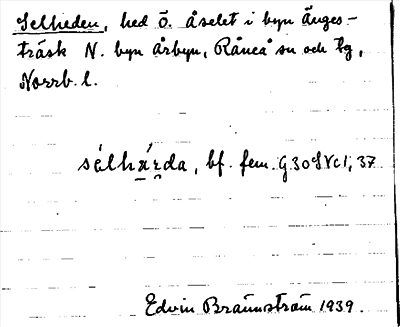 Selheden, hed Ö. åselet i byn Änges-
träsk N. byn Årbyn, Råneå sn och tg,
Norrb. l.
sèlhárda, bf. fem. G 30 S V c 1; 37
Edvin Brännström 1939.